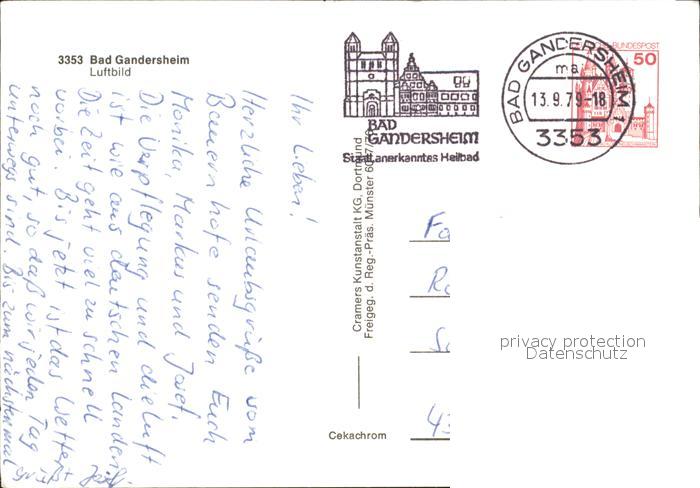 3353 Bad Gandersheim
Luftbild
Ihr Lieben!
Herzliche Urlaubsgrüße vom
Bauernhofe senden Euch
Monika, Markus und Josef.
Die Verpflegung und die Luft
ist wie aus deutschen Landen.
Die Zeit geht viel zu schnell
vorbei. Bis jetzt ist das Wetter
noch gut, so daß wir jeden Tag
unterwegs sind. Bis zum nächsten mal
Cramers Kunstanstalt KG, Dortmund
Freigeg. d. Reg.-Präs. Münster
Cekachrom
BAD
GANDERSHEIM
Staatl. anerkanntes Heilbad
BAD GANDERSHEIM 1
ma
13.9.79-18
3353
BUNDESPOST
50
privacy protection
Datenschutz